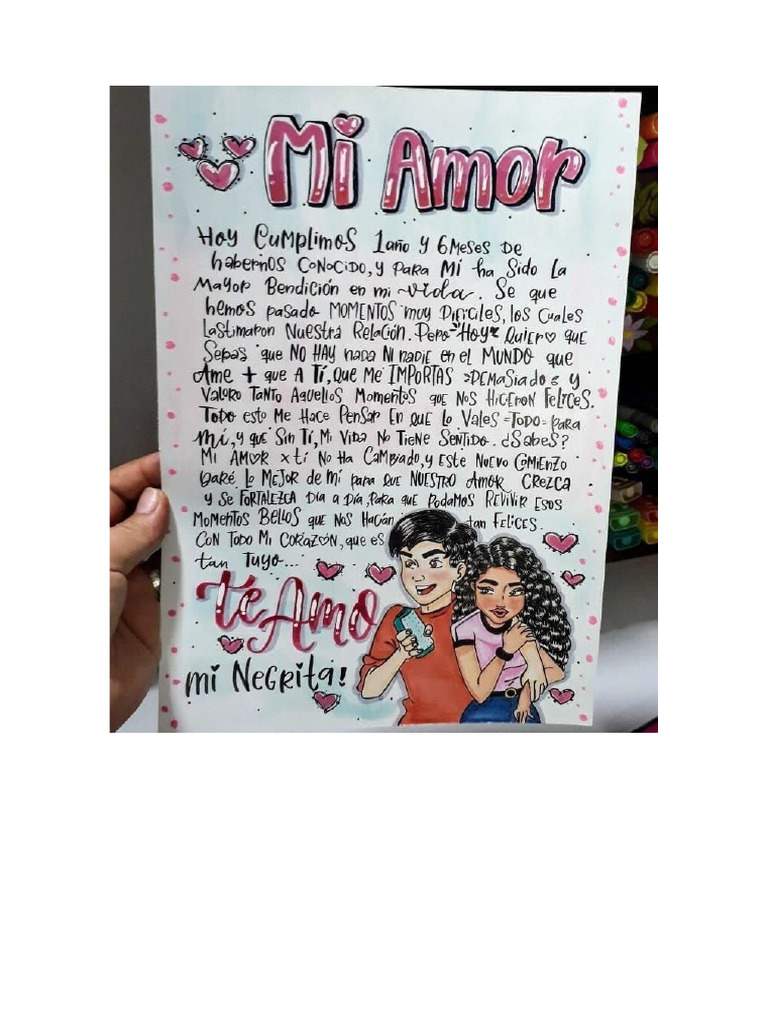 Mi Amor
Hoy Cumplimos 1 año y 6 Meses De
habernos Conocido, y para Mí ha Sido La
Mayor Bendición en mi vida. Se que
hemos pasado MOMENTOS muy Difíciles, los Cuales
Lastimaron Nuestra Relación. Pero Hoy Quiero que
Sepas que NO HAY nada NI NADIE en el MUNDO que
Ame + que A Tí, QUE ME IMPORTAS DEMASIADO y
Valoro Tanto Aquellos Momentos que Nos Hicieron Felices.
Todo esto Me Hace Pensar En que Lo Vales =TODO= para
mí, y que Sin Tí, Mi Vida No Tiene Sentido. ¿Sabes?
Mi AMOR x tí No Ha Cambiado, y Este Nuevo Comienzo
Daré Lo Mejor de Mí para que NUESTRO Amor CREZCA
y Se FORTALEZCA Día a Día, Para que Podamos REVIVIR ESOS
Momentos Bellos que Nos Hacían tan FELICES.
Con Todo Mi Corazón, que es
tan Tuyo...
te Amo
mi Negrita!